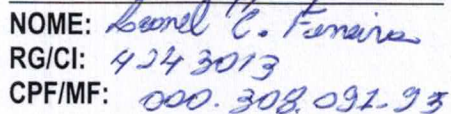 NOME: Leonel C. Ferreira
RG/CI: 4243013
CPF/MF: 000.308.091-93